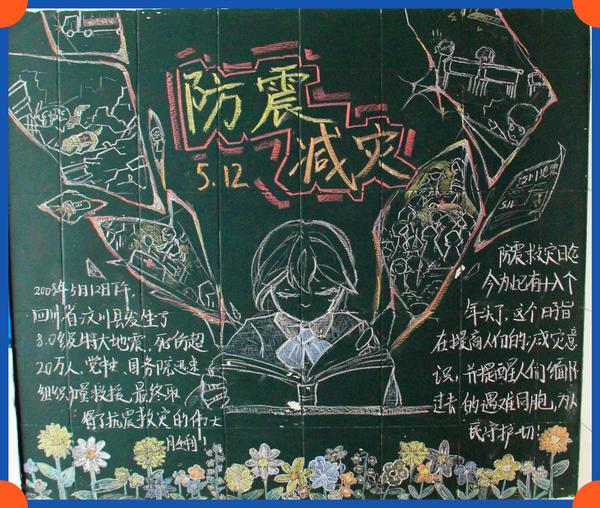 防震
减灾
5.12
2008年5月12日下午,
四川省汶川县发生了
8.0级特大地震,死伤超
20万人,党中央、国务院迅速
组织力量救援,最终取
得了抗震救灾的伟大
胜利!
防震救灾日
今为止已有十八个
年头了,这个日旨
在提高人们的减灾意
识,并提醒人们缅怀
过去的遇难同胞,为人
民守护一切!